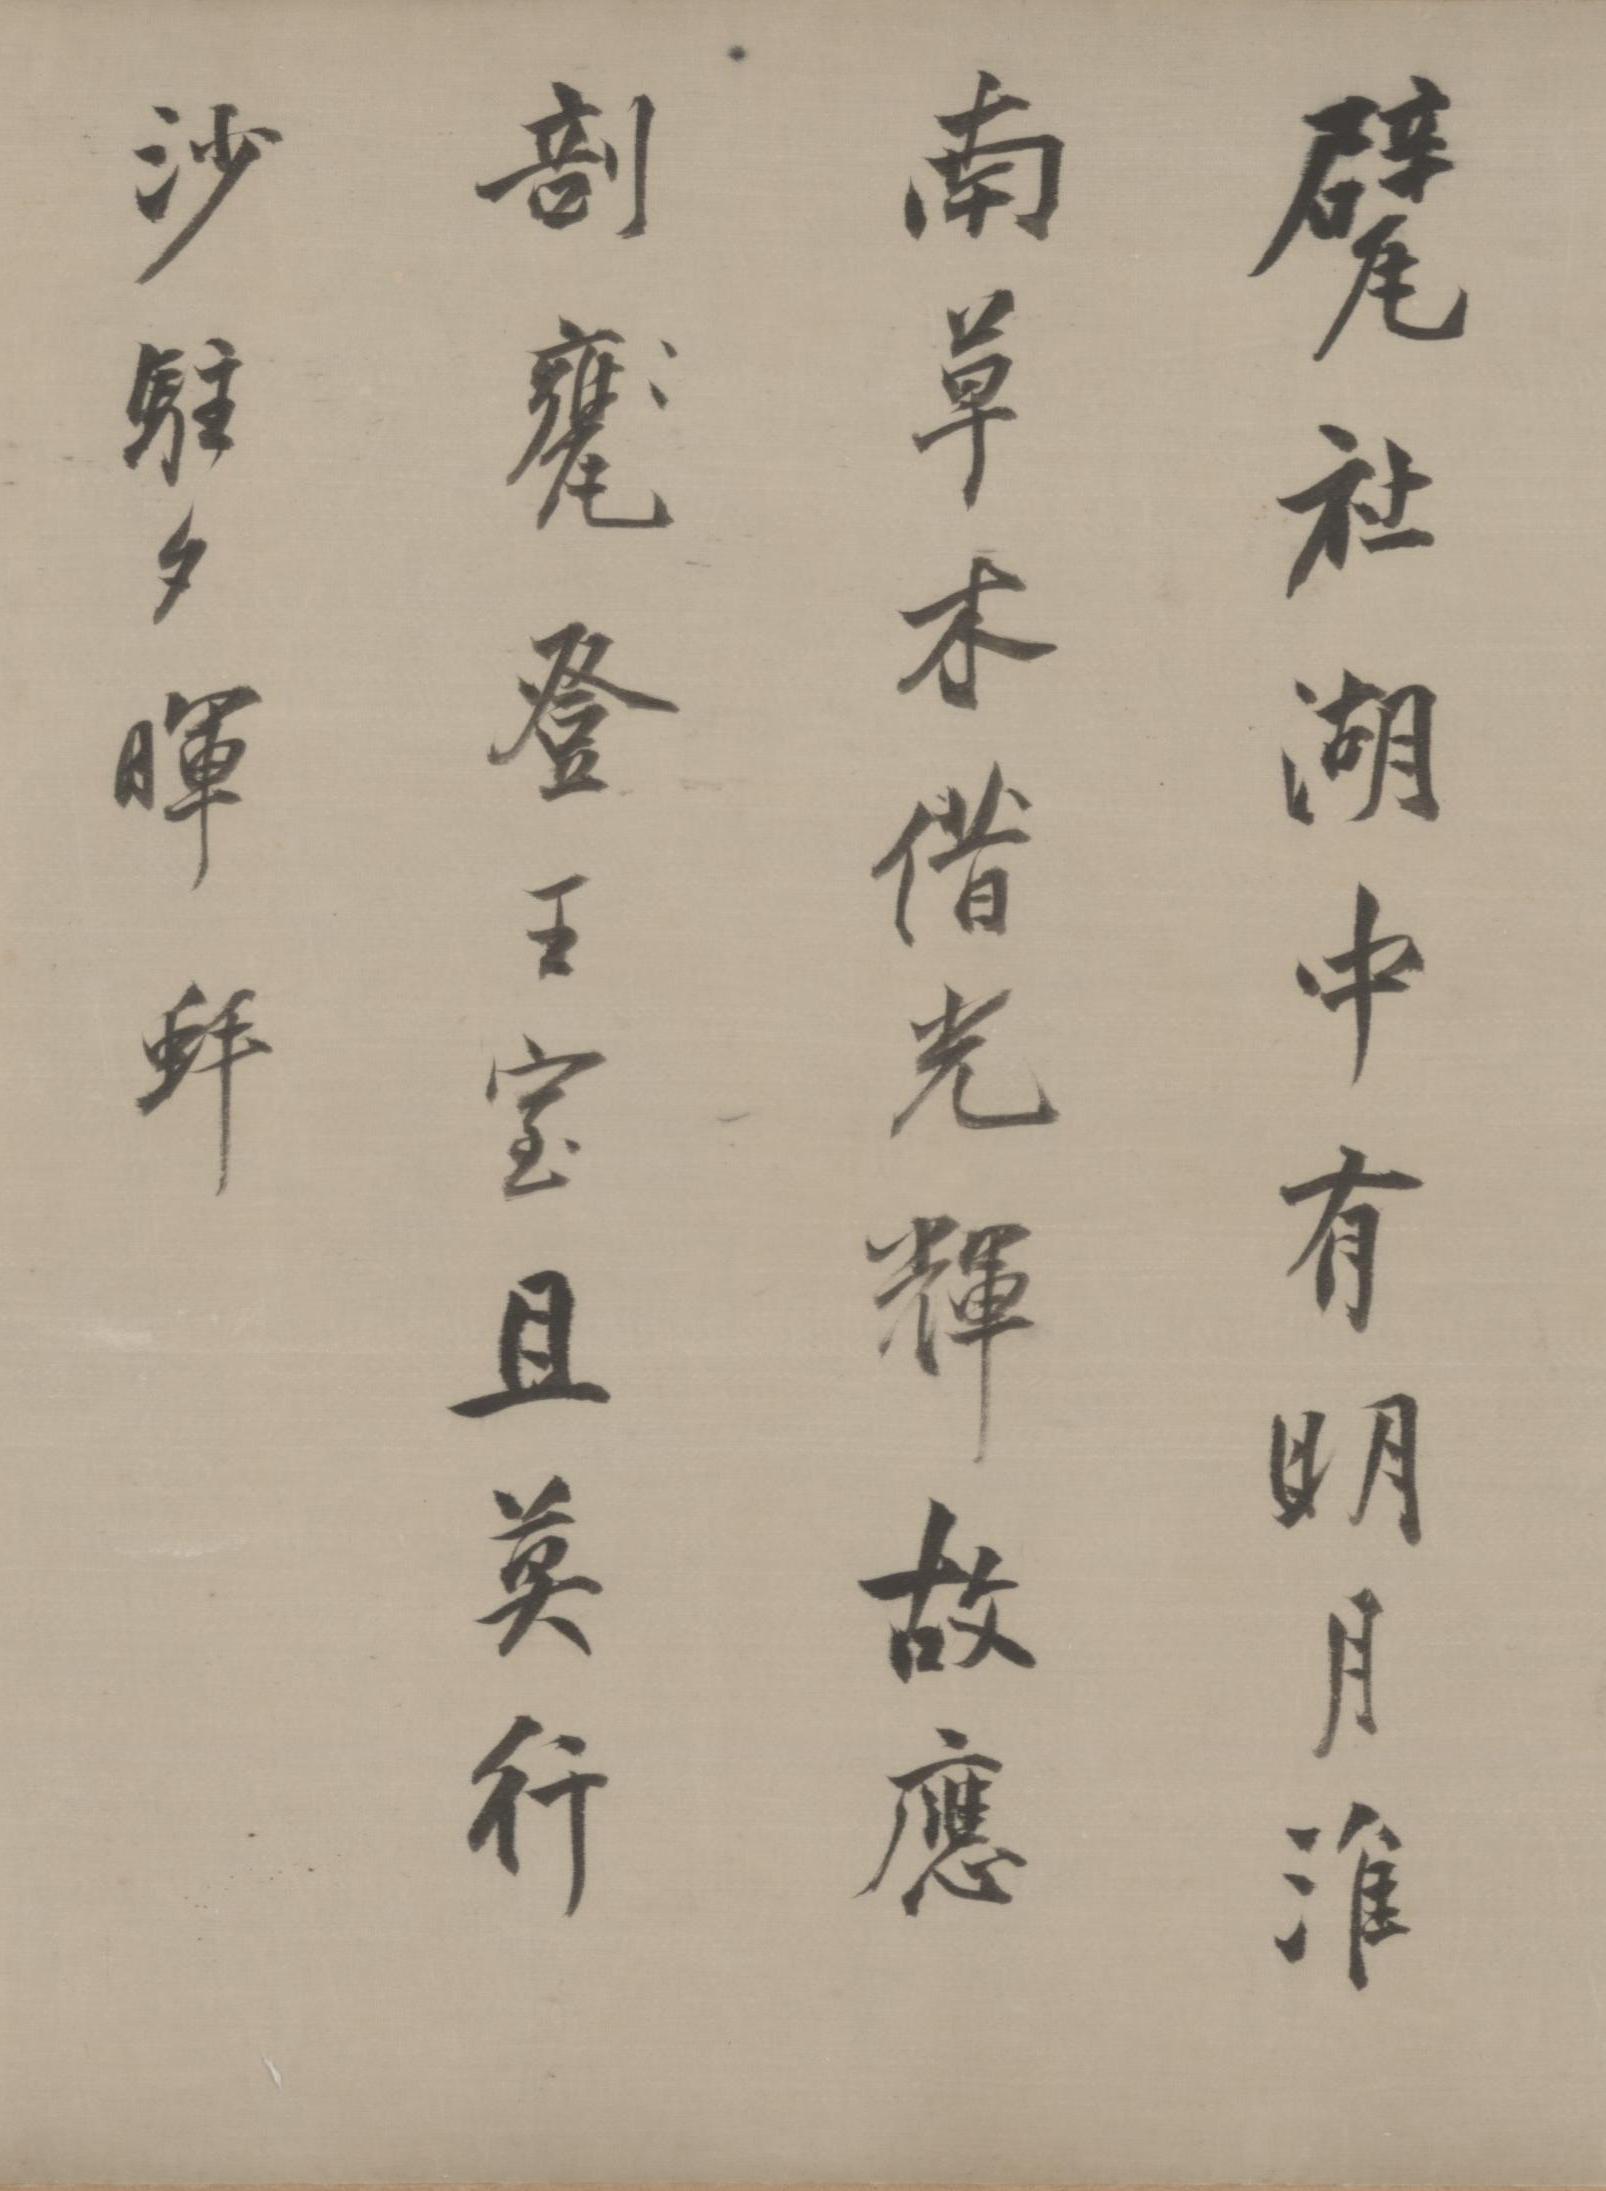 甓社湖中有明月淮
南草木借光輝故應
剖甕登王室且莫行
沙駐夕暉 蚌